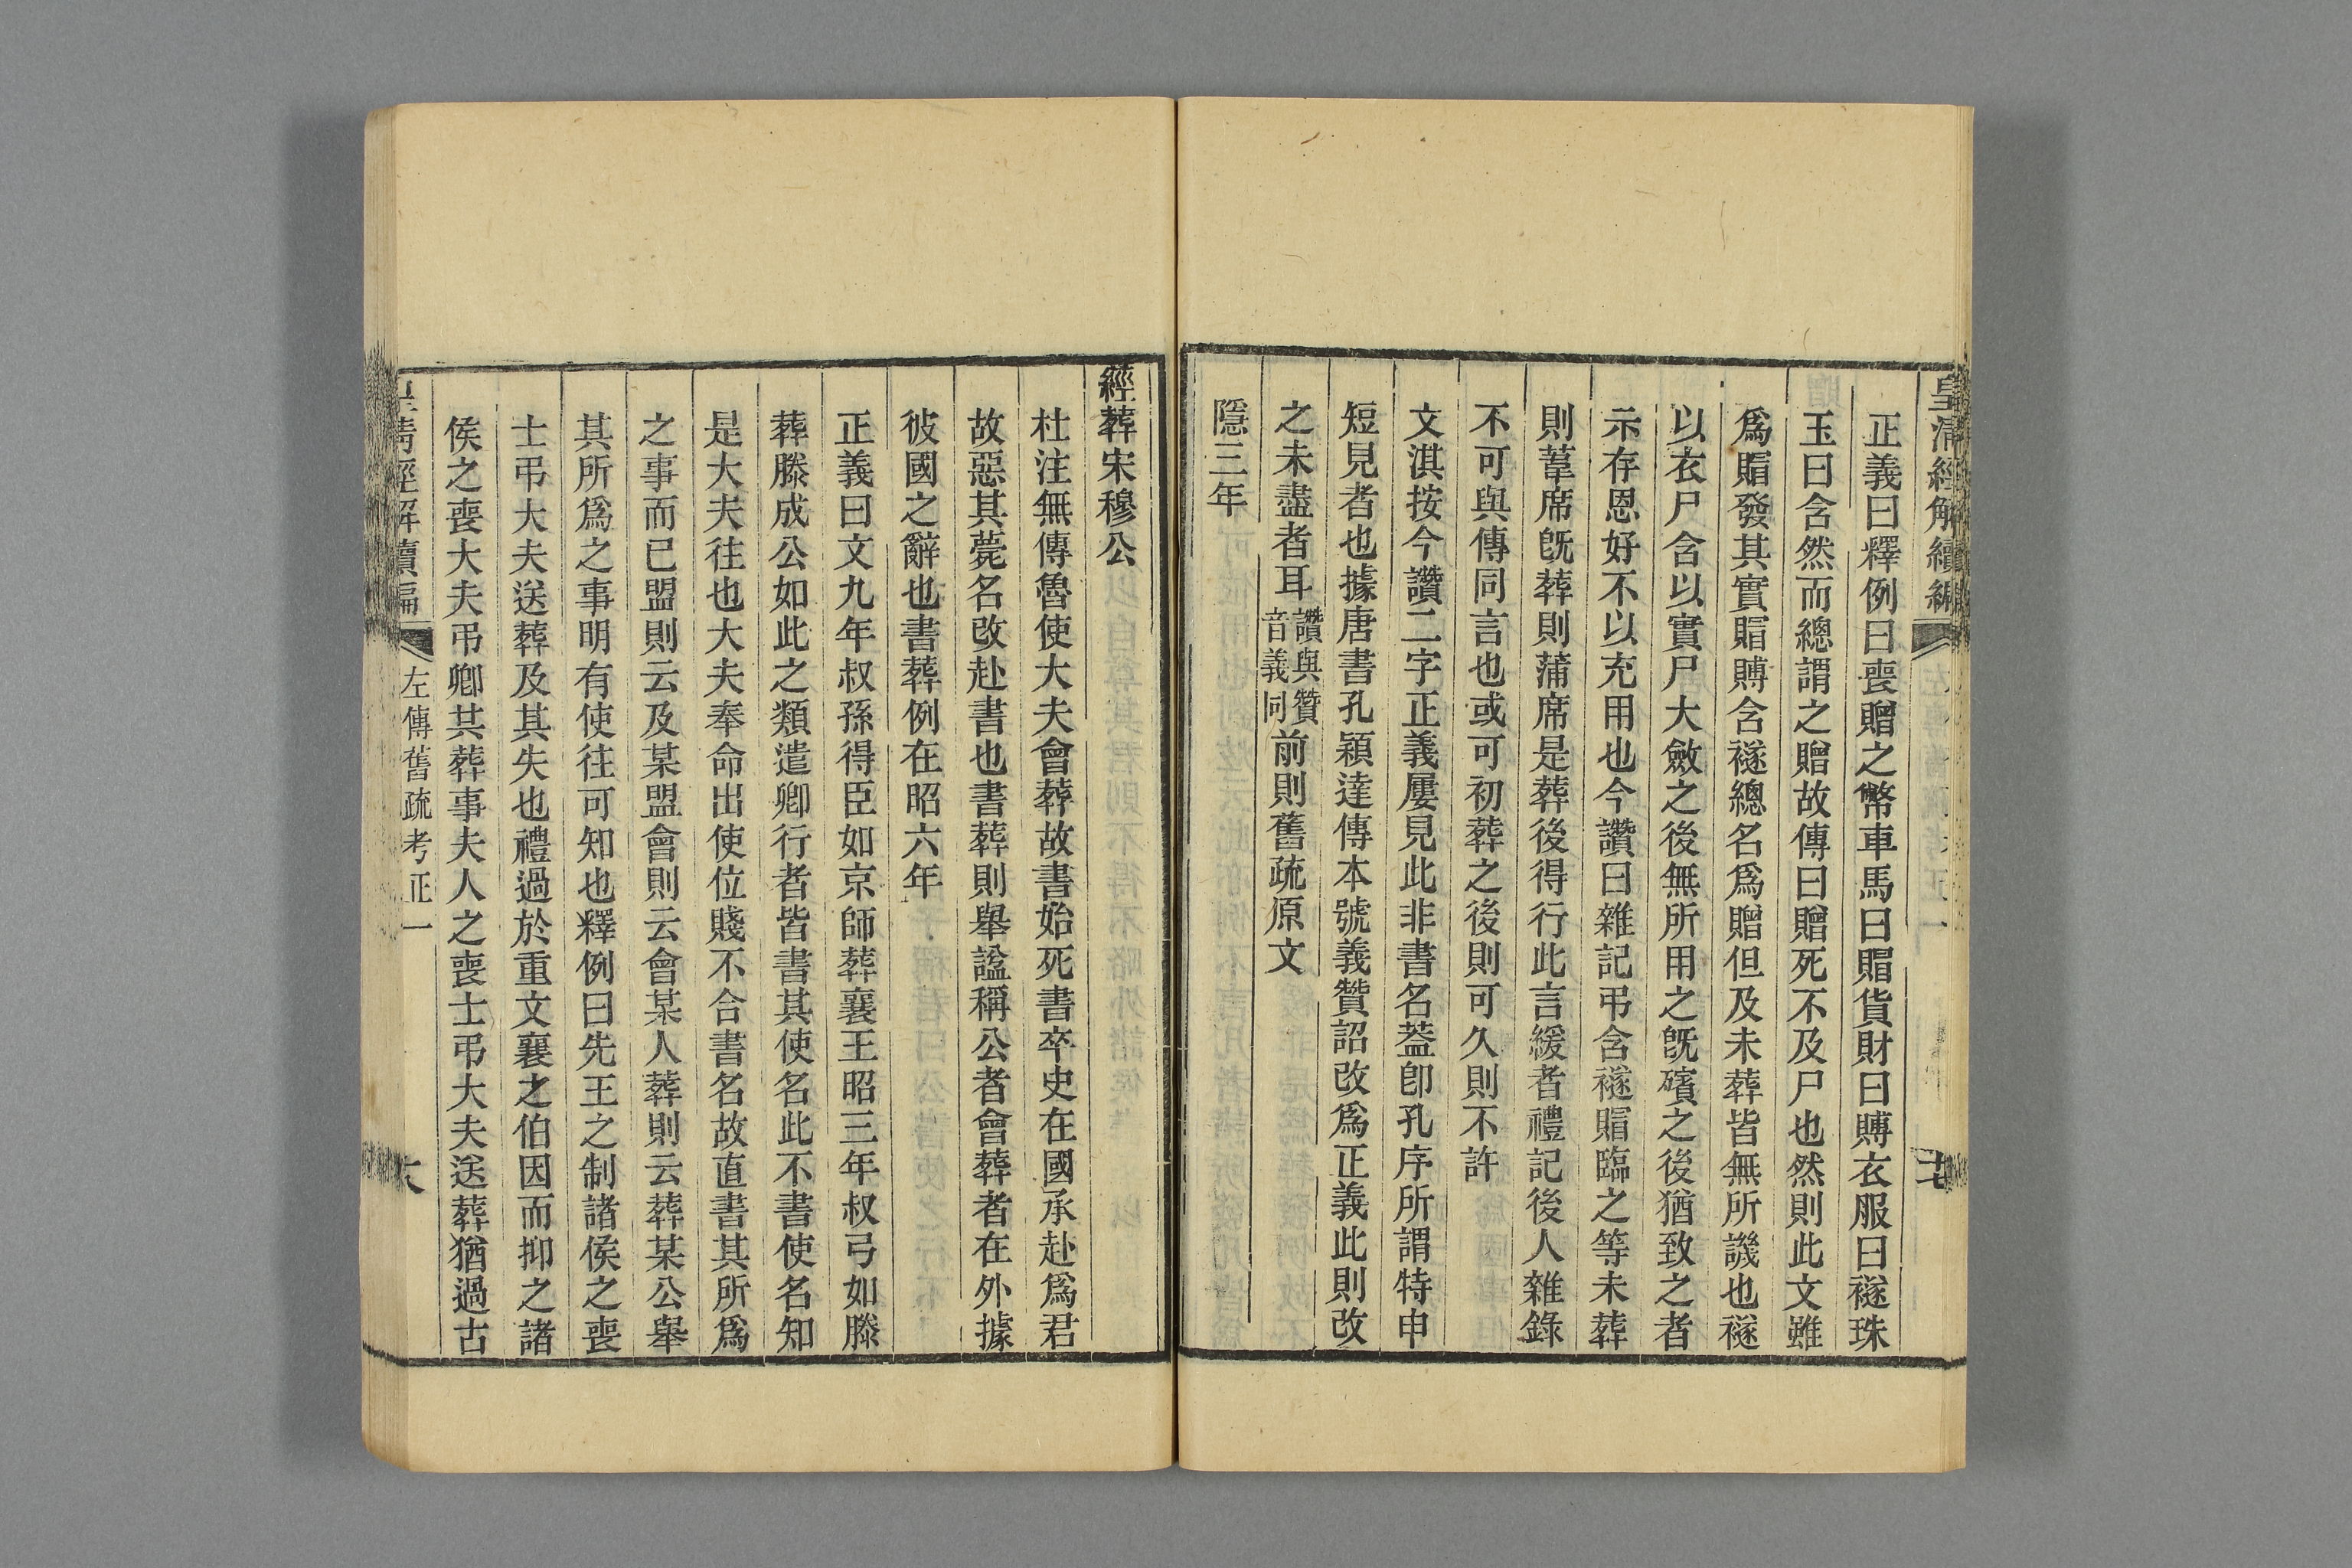 皇清經解續編
正義曰釋例曰喪贈之幣車馬曰賵貨財曰賻衣服曰襚珠
玉曰含然而總謂之贈故傳曰贈死不及尸也然則此文雖
爲賵發其實賵賻含襚總名爲贈但及未葬皆無所譏也襚
以衣尸含以實尸大斂之後無所用之旣殯之後猶致之者
示存恩好不以充用也今讚曰雜記弔含襚賵臨之等未葬
則葦席旣葬則蒲席是葬後得行此言緩者禮記後人雜錄
不可與傳同言也或可初葬之後則可久則不許
文淇按今讚二字正義屢見此非書名葢卽孔序所謂特申
短見者也據唐書孔穎達傳本號義贊詔改爲正義此則改
之未盡者耳讚與贊音義同前則舊疏原文
隱三年
經葬宋穆公
杜注無傳魯使大夫會葬故書始死書卒史在國承赴爲君
故惡其薨名改赴書也書葬則舉諡稱公者會葬者在外據
彼國之辭也書葬例在昭六年
正義曰文九年叔孫得臣如京師葬襄王昭三年叔弓如滕
葬滕成公如此之類遣卿行者皆書其使名此不書使名知
是大夫往也大夫奉命出使位賤不合書名故直書其所爲
之事而已盟則云及某盟會則云會某人葬則云葬某公舉
其所爲之事明有使往可知也釋例曰先王之制諸侯之喪
士弔大夫送葬及其失也禮過於重文襄之伯因而抑之諸
侯之喪大夫弔卿共葬事夫人之喪士弔大夫送葬猶過古
清經解續編 左傳舊疏考正一